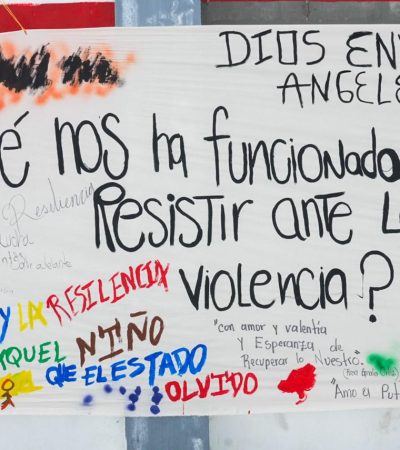 DIOS EN
ANGELE
é nos ha funcionado
Resistir ante L
violencia?
Resiliencia
salir adelante
Y LA RESILENCIA
AQUEL NIÑO
QUE EL ESTADO
OLVIDO
"con amor y valentía
y Esperanza de
Recuperar lo Nuestro".
"Amo el Put